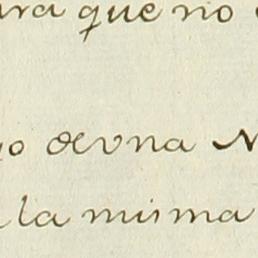 ara que no
go de una N
la misma